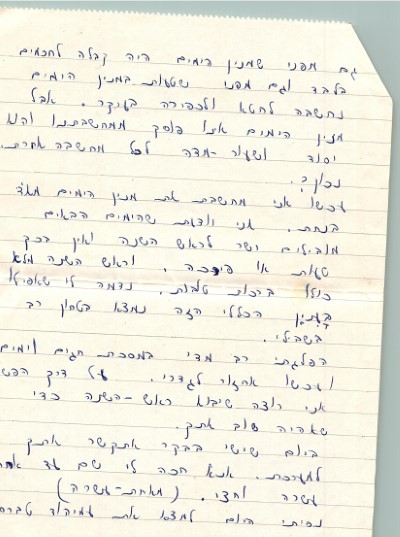 גם מפני שמנין הימים היה קבלה לחכמים
בלבד וגם מפני שטעות במנין הימים
נחשבה לחטא ולכפירה בעיקר. אבל
מנין הימים אינו פוסק ממחשבתנו והוא
יסוד ושעור-מדה לכל מחשבה אחרת.
נכון?.
עכשו אני מחשבת את מנין הימים
בנחת. אני יודעת שהימים הבאים
מובילים ישר לראש השנה ואין בכך
טעות או פירכה. וראש השנה מלא
כולו ברכות טובות. נדמה לי שאפילו
הכללי הזה נמצא בטחון רב
בשבילי.
הפלגתי רב מדי במסכת חגים וימים
ועכשו אחזור לגדרי. על דרך הפשט
אני רוצה שיבוא ראש-השנה כדי
שאהיה שוב אתך.
ביום שישי בבקר אתקשר אתך
למערכת. אנא חכה לי שם עד אחת
עשרה וחצי. (מאחת-עשרה)
נסיתי היום למצא את עמיהוד